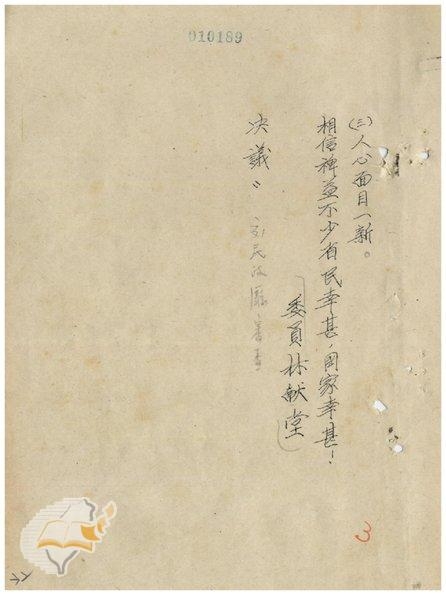 010189
(三)人心面目一新。
相信裨益不少省民幸甚,国家幸甚!
委員林献堂
決議:
民政廳審查
3